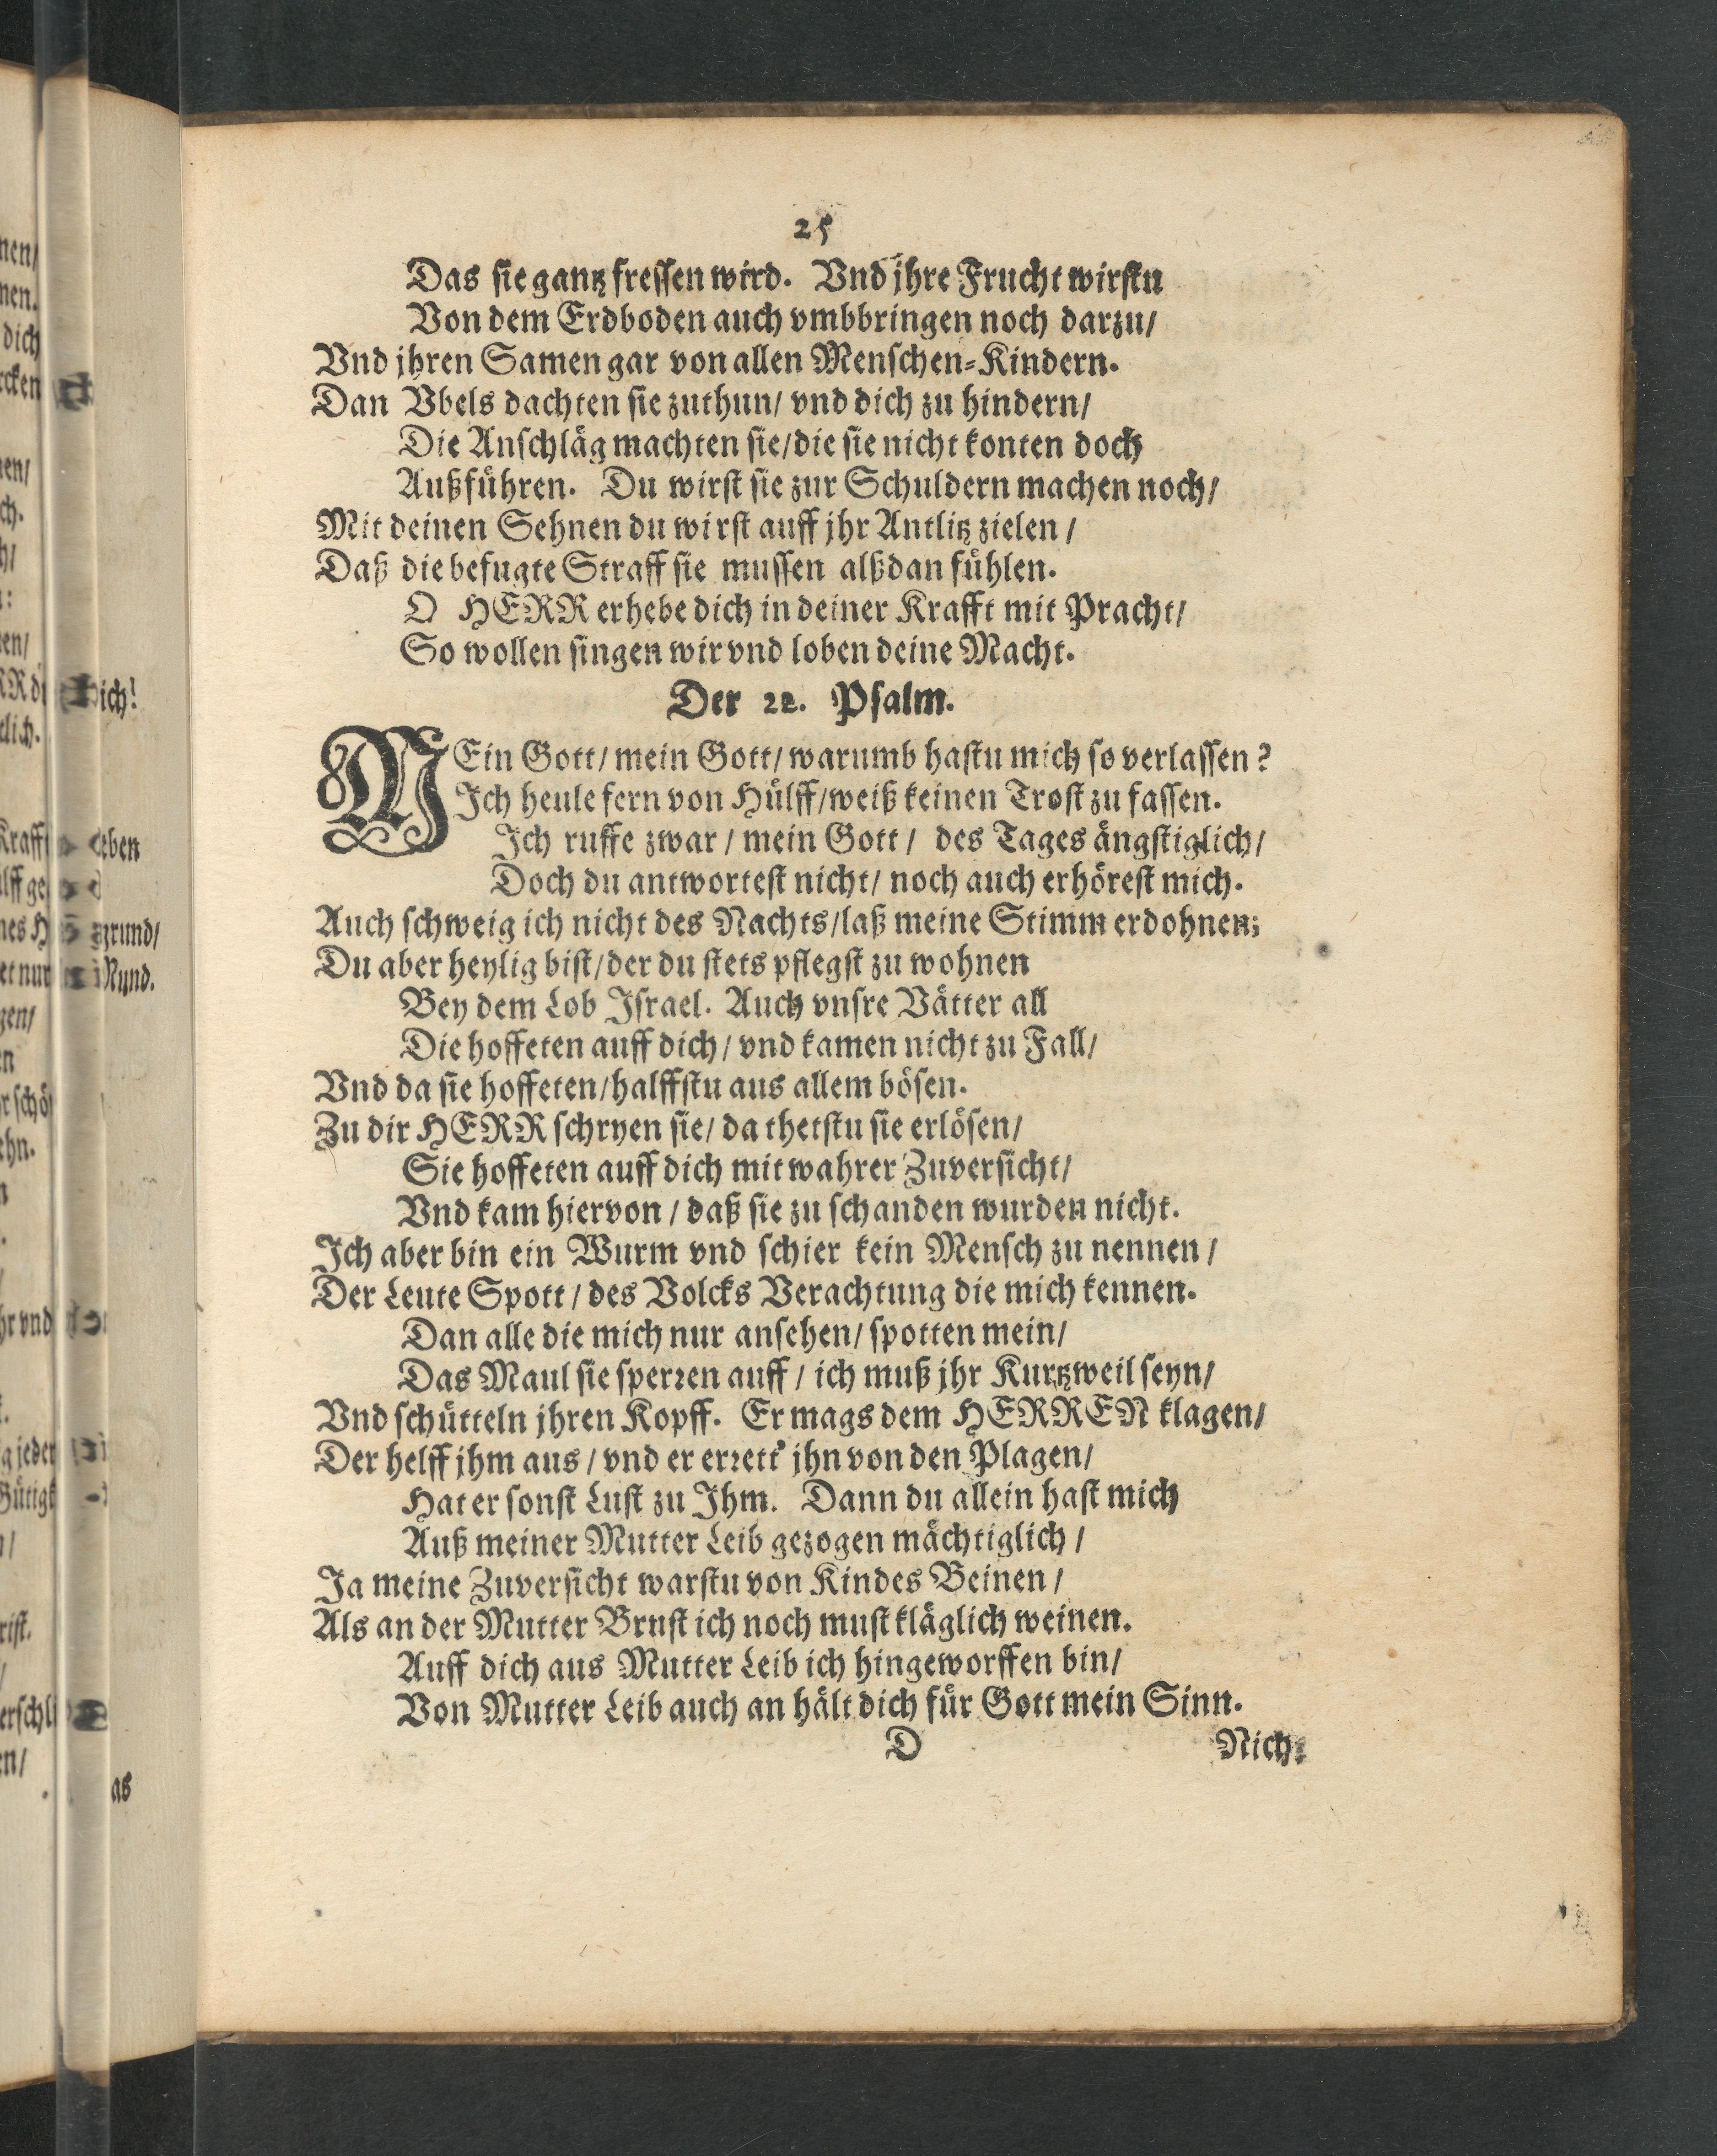 25
Das sie gantz fressen wird. Vnd jhre Frucht wirstu
Von dem Erdboden auch vmbbringen noch darzu/
Vnd jhren Samen gar von allen Menschen-Kindern.
Dan Vbels dachten sie zuthun/ vnd dich zu hindern/
Die Anschläg machten sie/die sie nicht konten doch
Außführen. Du wirst sie zur Schuldern machen noch/
Mit deinen Sehnen du wirst auff jhr Antlitz zielen/
Daß die befugte Straff sie mussen alßdan fühlen.
O HERR erhebe dich in deiner Krafft mit Pracht/
So wollen singen wir vnd loben deine Macht.
Der 22. Psalm.
MEin Gott/ mein Gott/ warumb hastu mich so verlassen?
Ich heule fern von Hülff/weiß keinen Trost zu fassen.
Ich ruffe zwar/ mein Gott/ des Tages ängstiglich/
Doch du antwortest nicht/ noch auch erhörest mich.
Auch schweig ich nicht des Nachts/laß meine Stimm erdohnen;
Du aber heylig bist/der du stets pflegst zu wohnen
Bey dem Lob Israel. Auch vnsre Vätter all
Die hoffeten auff dich/ vnd kamen nicht zu Fall/
Vnd da sie hoffeten/halffstu aus allem bösen.
Zu dir HERR schryen sie/ da thetstu sie erlösen/
Sie hoffeten auff dich mit wahrer Zuversicht/
Vnd kam hiervon/ daß sie zu schanden wurden nicht.
Ich aber bin ein Wurm vnd schier kein Mensch zu nennen/
Der Leute Spott/ des Volcks Verachtung die mich kennen.
Dan alle die mich nur ansehen/ spotten mein/
Das Maul sie sperren auff/ ich muß jhr Kurtzweil seyn/
Vnd schütteln jhren Kopff. Er mags dem HERREN klagen/
Der helff jhm aus/ vnd er errett' jhn von den Plagen/
Hat er sonst Lust zu Ihm. Dann du allein hast mich
Auß meiner Mutter Leib gezogen mächtiglich/
Ja meine Zuversicht warstu von Kindes Beinen/
Als an der Mutter Brust ich noch must kläglich weinen.
Auff dich aus Mutter Leib ich hingeworffen bin/
Von Mutter Leib auch an hält dich für Gott mein Sinn.
D Nich